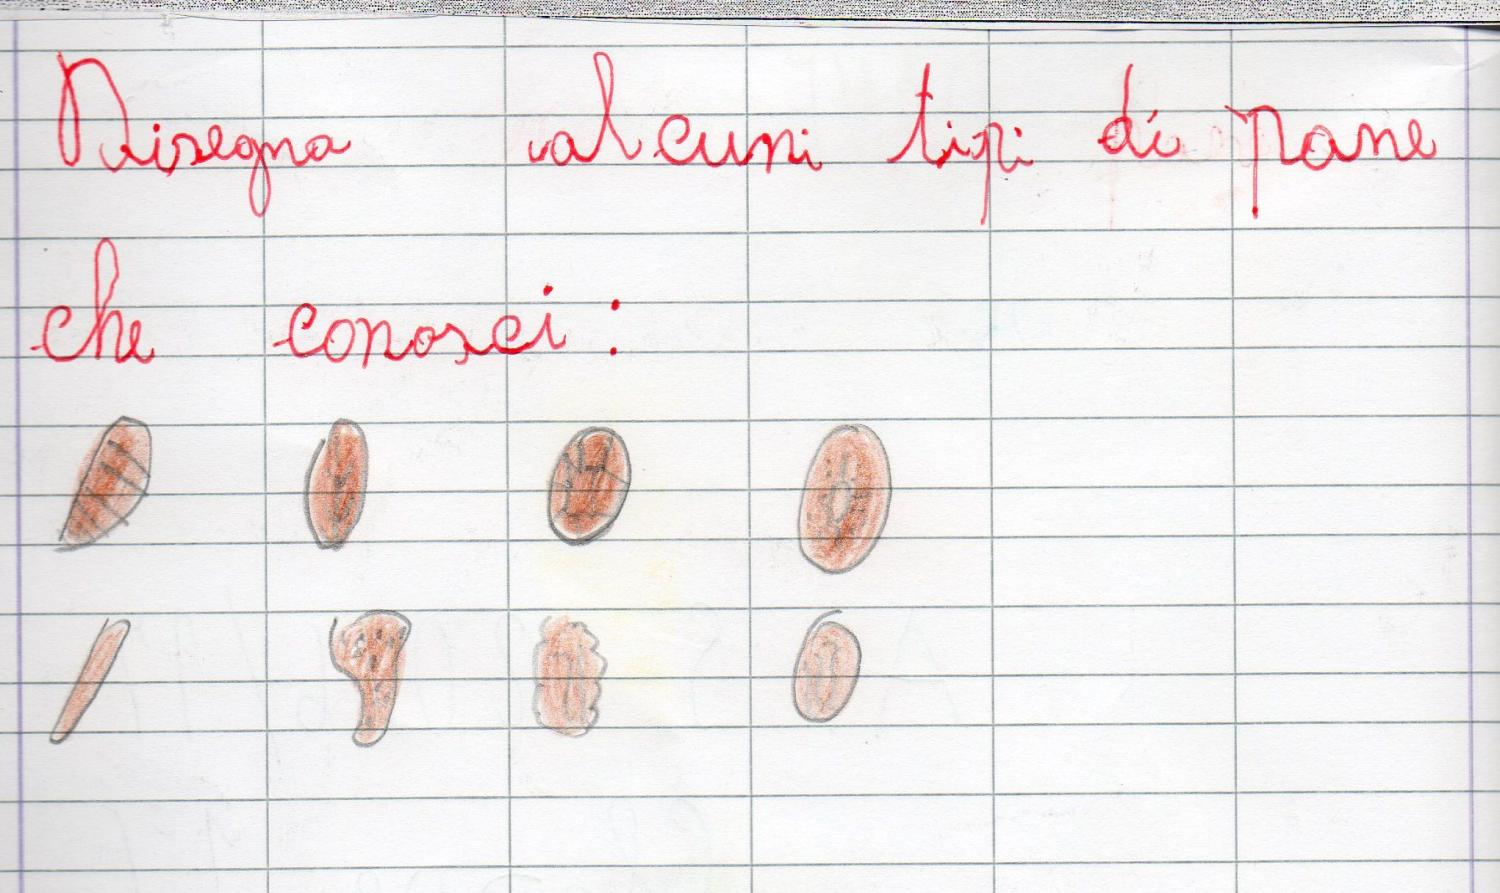 Disegna alcuni tipi di pane
che conosci: